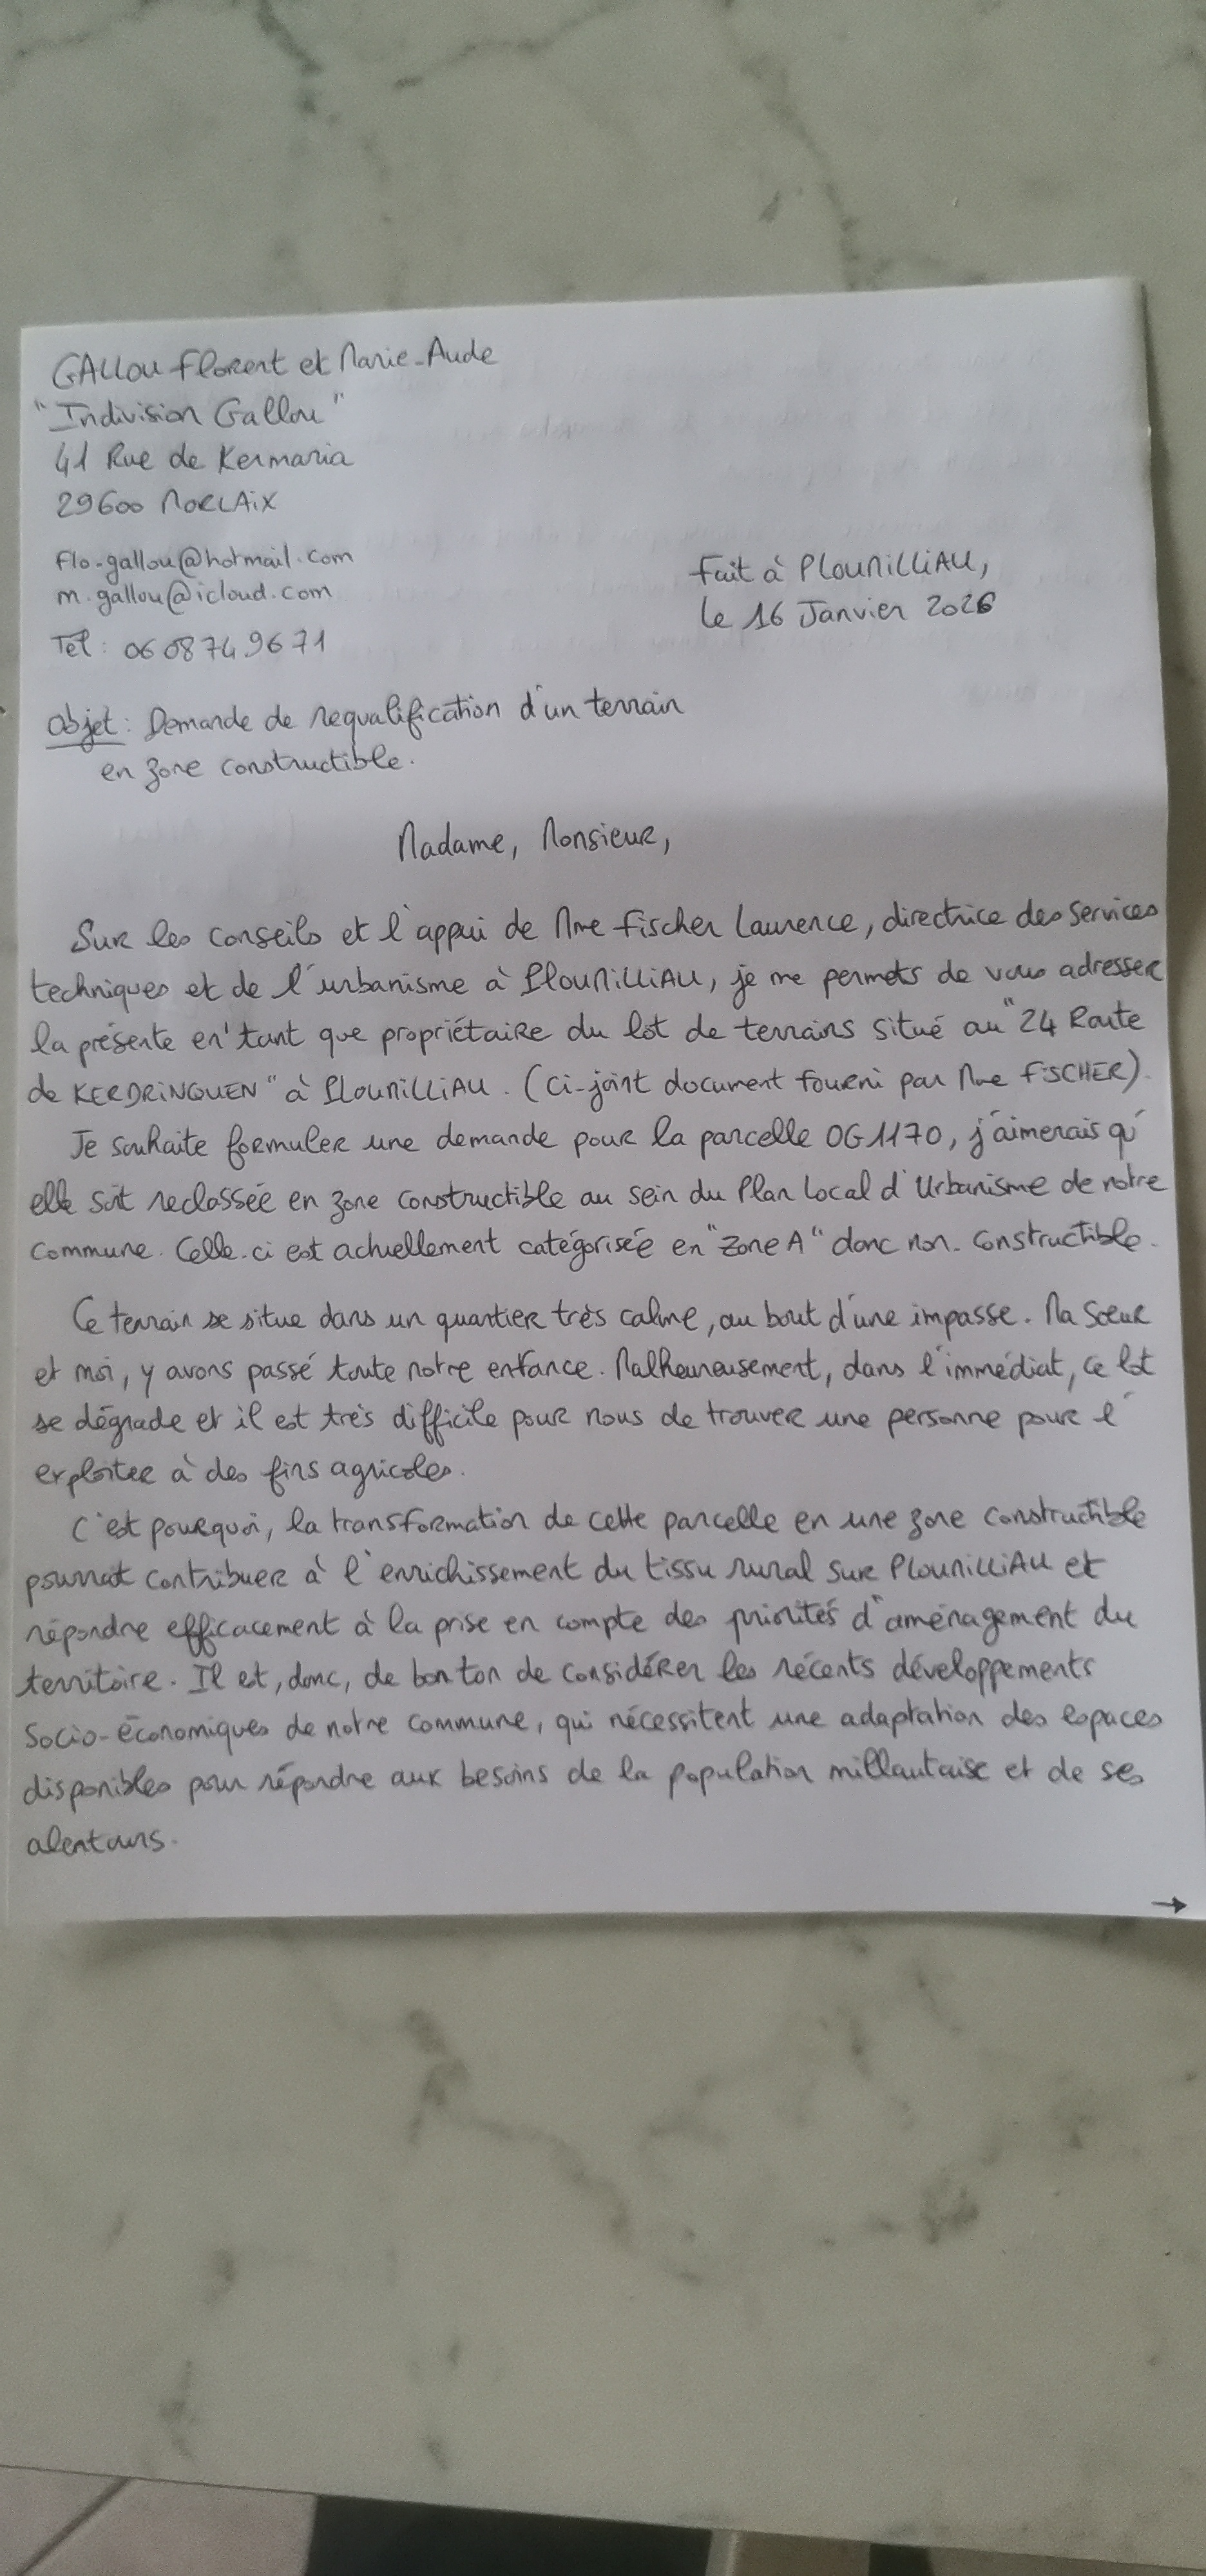 GALLOU Florent et Marie-Aude
"Indivision Gallou"
41 Rue de Kermaria
29600 MORLAIX
Flo-gallou@hotmail.com
m.gallou@icloud.com
Tél : 06 08 74 96 71
Fait à PLOUMILLIAU,
le 16 Janvier 2026
Objet : Demande de requalification d'un terrain
en zone constructible.
Madame, Monsieur,
Sur les conseils et l'appui de Mme Fischer Laurence, directrice des services
techniques et de l'urbanisme à PLOUMILLIAU, je me permets de vous adresser
la présente en tant que propriétaire du lot de terrains situé au "24 Route
de KERDRINQUEN" à PLOUMILLIAU. (Ci-joint document fourni par Mme FISCHER).
Je souhaite formuler une demande pour la parcelle OG1170, j'aimerais qu'
elle soit reclassée en zone constructible au sein du Plan Local d'Urbanisme de notre
commune. Celle-ci est actuellement catégorisée en "Zone A" donc non-constructible.
Ce terrain se situe dans un quartier très calme, au bout d'une impasse. Ma Soeur
et moi, y avons passé toute notre enfance. Malheureusement, dans l'immédiat, ce lot
se dégrade et il est très difficile pour nous de trouver une personne pour l'
exploiter à des fins agricoles.
C'est pourquoi, la transformation de cette parcelle en une zone constructible
pourrait contribuer à l'enrichissement du tissu rural sur PLOUMILLIAU et
répondre efficacement à la prise en compte des priorités d'aménagement du
territoire. Il et, donc, de bon ton de considérer les récents développements
socio-économiques de notre commune, qui nécessitent une adaptation des espaces
disponibles pour répondre aux besoins de la population millautaise et de ses
alentours.
→